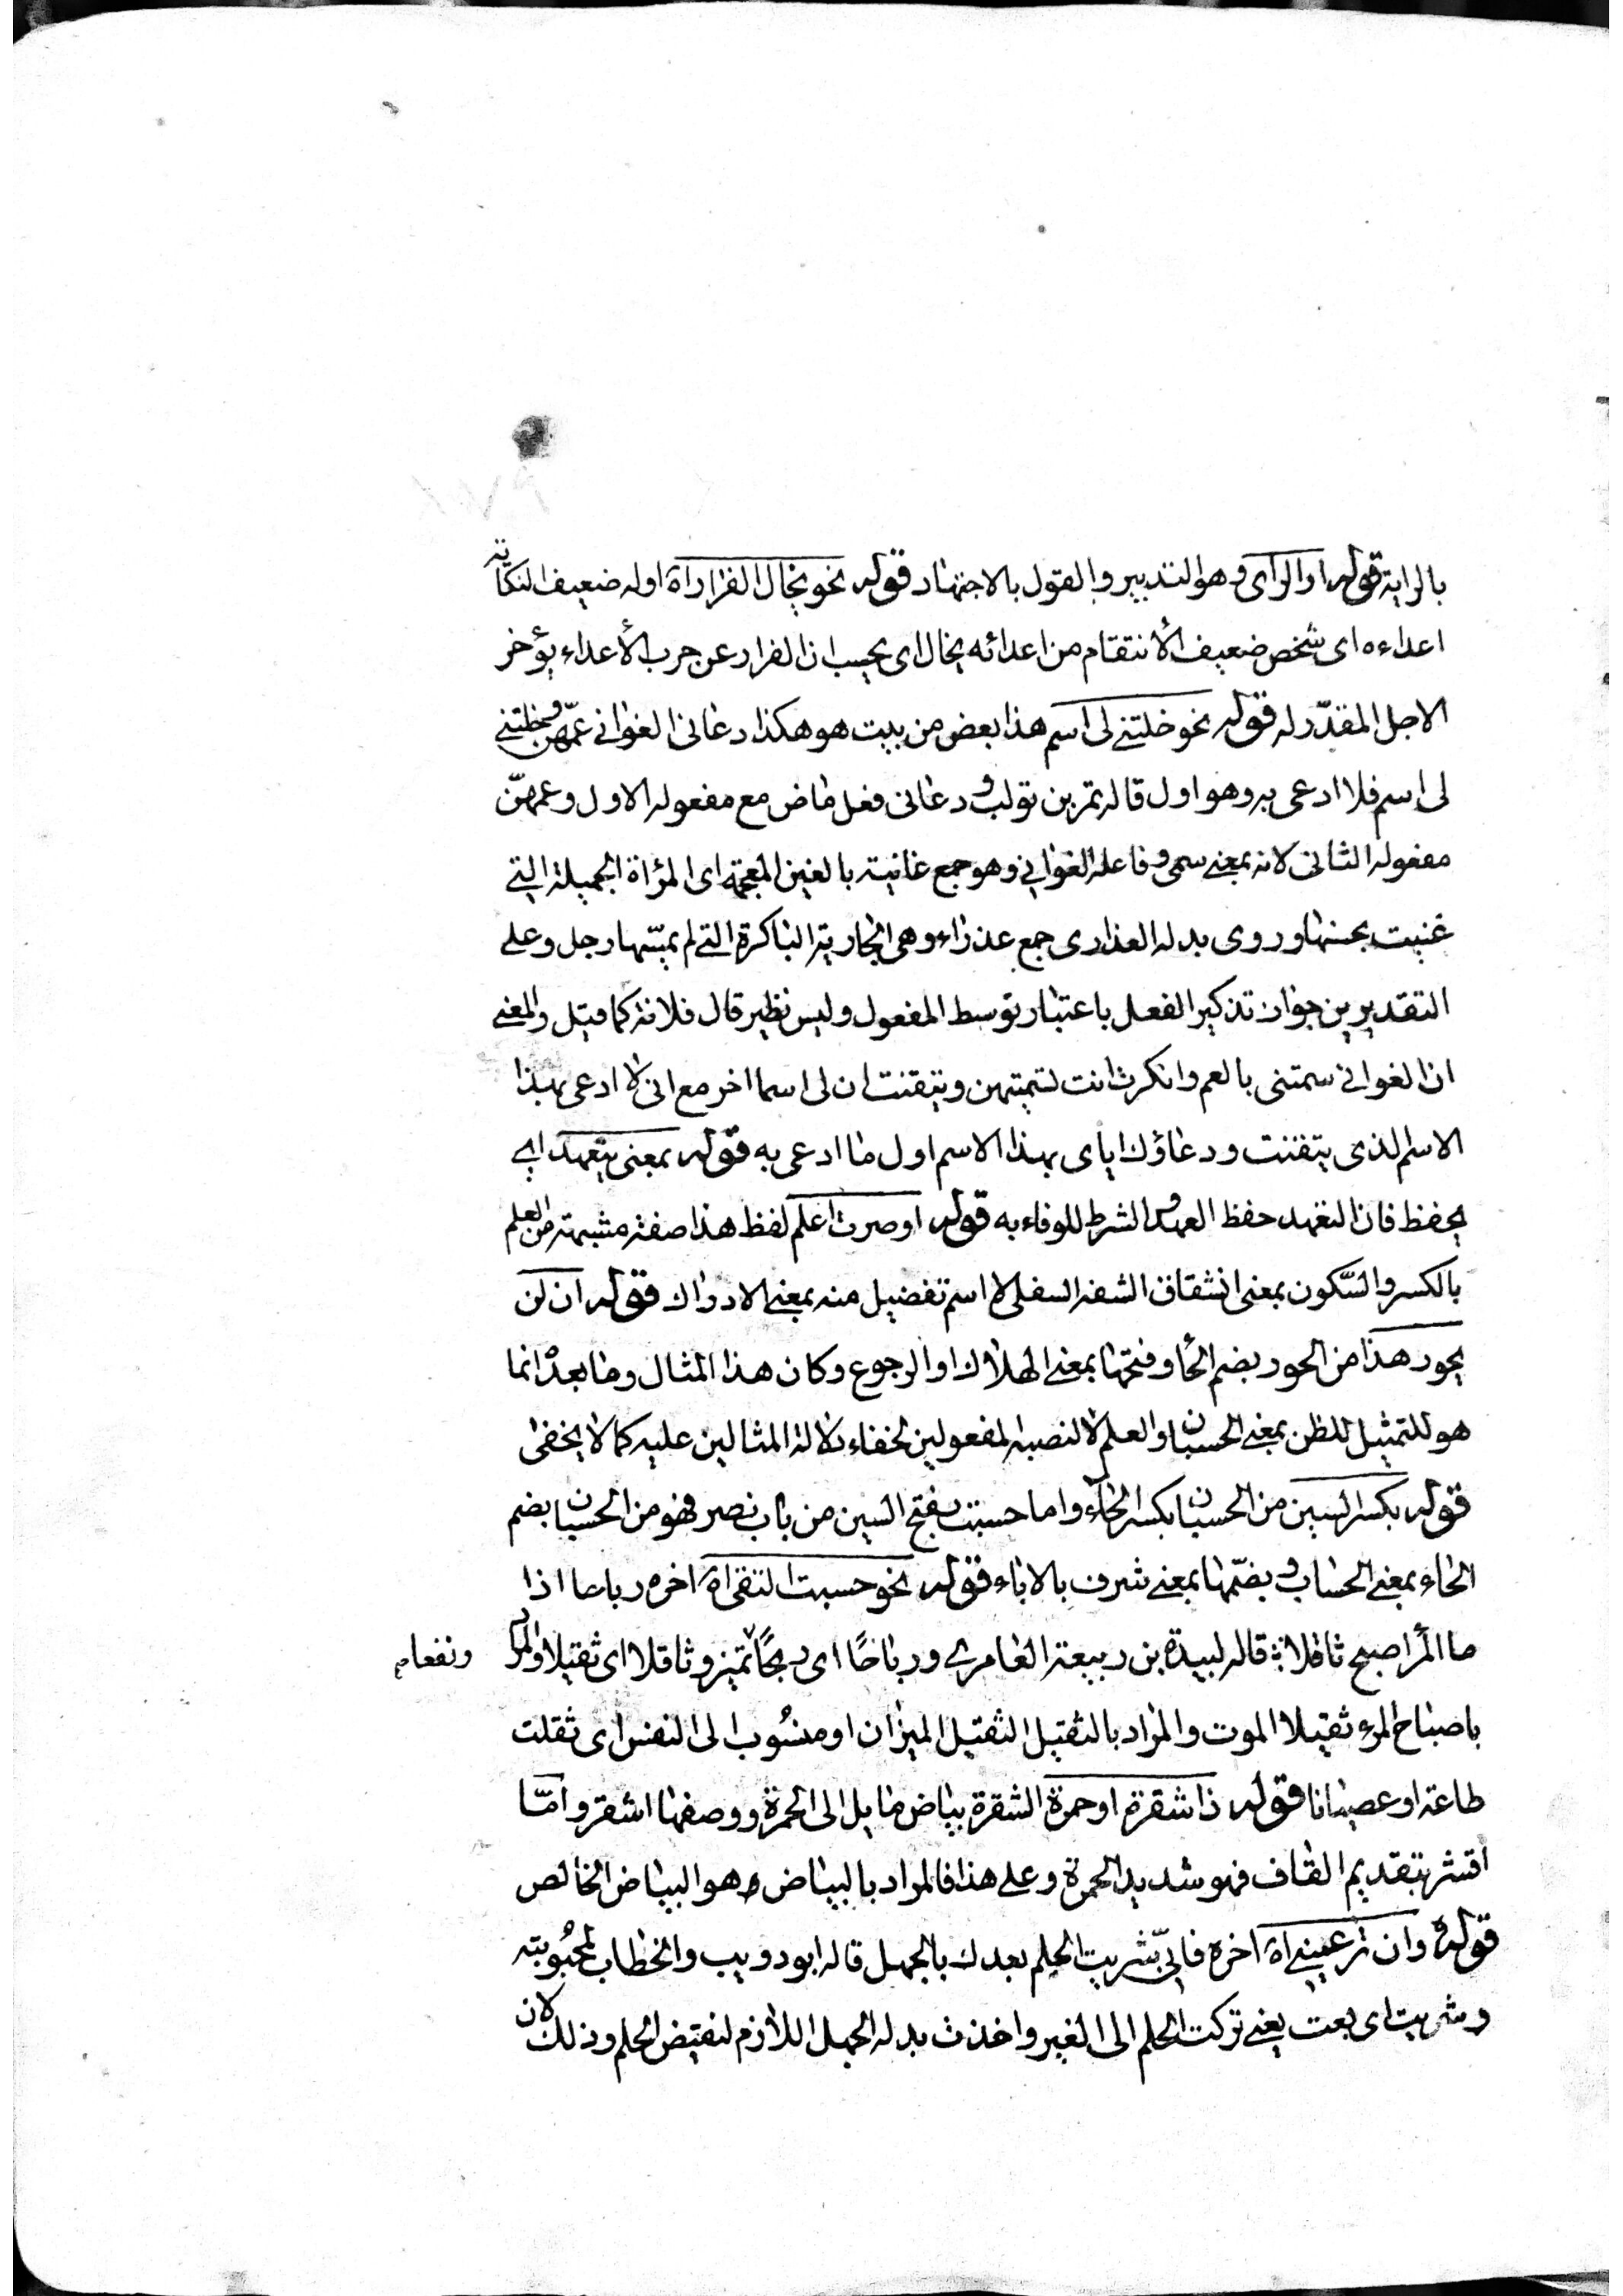 بالراية قوله او الرأى وهو التدبير والقول بالاجتهاد قوله نحو يخال الفرار اه اوله ضعيف النكاية
اعداءه اى شخص ضعيف الأنتقام من اعدائه يخال اى يحسب ان الفرار عن حرب الأعداء يؤخر
الاجل المقدّر له قوله نحو خلتنى لى اسم هذا بعض من بيت هو هكذا دعانى الغوانى عمّهن وخلتنى
لى اسم فلا ادعى به وهو اول قاله نمر بن تولب ودعانى فعل ماض مع مفعوله الاول وعمهنّ
مفعوله الثانى لانه بمعنى سمى وفاعله الغوانى وهو جمع غانية بالغين المعجمة اى المرأة الجميلة التى
غنيت بحسنها وروى بدله العذارى جمع عذراء وهى الجارية الباكرة التى لم يمسّها رجل وعلى
التقديرين جواز تذكير الفعل باعتبار توسط المفعول وليس نظير قال فلانة كما قيل والمعنى
ان الغوانى سمتنى بالعم وانكرت انت تسميتهن وتيقنت ان لى اسما اخر مع انى لا ادعى بهذا
الاسم الذى تيقنت ودعاؤك اياى بهذا الاسم اول ما ادعى به قوله بمعنى يتعهد اى
يحفظ فان التعهد حفظ العهد والشرط للوفاء به قوله او صرت اعلم لفظ هذا صفة مشبهة من العلم
بالكسر والسّكون بمعنى انشقاق الشفة السفلى لا اسم تفضيل منه بمعنى الادراك قوله ان لن
يحور هذا من الحور بضم الحا وفتحها بمعنى الهلاك او الرجوع وكان هذا المثال وما بعده انما
هو للتمثيل للظن بمعنى الحسبان والعلم لا لنصبه لمفعولين لخفاء دلالة المثالين عليه كما لا يخفى
قوله بكسر السين من الحسبان بكسر الحاء واما حسبت بفتح السين من باب نصر فهو من الحسبان بضم
الحاء بمعنى الحساب وبضمّها بمعنى شرف بالاباء قوله نحو حسبت التقى اه اخره رباحا اذا
ما المرأ اصبح ثاقلا قاله لبيدة بن ربيعة العامرى ورباحًا اى ربحًا تميز وثاقلا اى ثقيلا والمراد ونفعا
باصباح المرء ثقيلا الموت والمراد بالثقيل الثقيل الميزان او منسُوب الى النفس اى ثقلت
طاعة او عصيانا قوله ذا شقرة او حمرة الشقرة بياض مايل الى الحمرة ووصفها اشقر وامّا
اقشر بتقديم القاف فهو شديد الحمرة وعلى هذا فالمراد بالبياض هو البياض الخالص
قوله وان تزعمينى اه اخره فانىّ شريت الحلم بعدك بالجهل قاله ابو دويب والخطاب لمحبُوبته
وشريت اى بعت يعنى تركت الحلم الى الغير واخذت بدله الجهل اللازم لنقيض الحلم وذلك لان